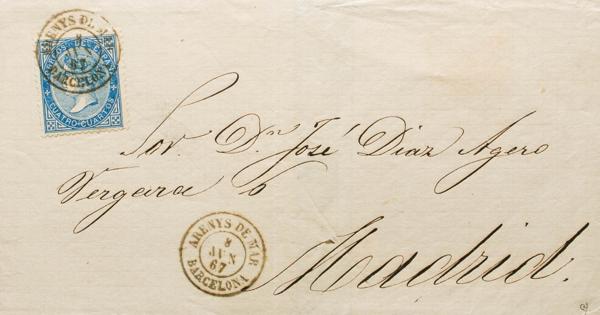 ARENYS DE MAR
8
JUN
67
BARCELONA
CORREOS DE ESPAÑA
CUATRO CUARTOS
Sor. Dn. José Diaz Agero
Vergara 6
ARENYS DE MAR
8
JUN
67
BARCELONA
Madrid.